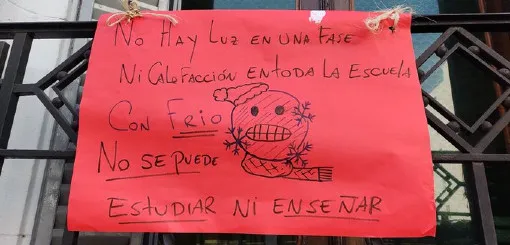 No Hay Luz en una fase
Ni Calefacción en toda la Escuela
Con Frio
No se puede
Estudiar ni enseñar